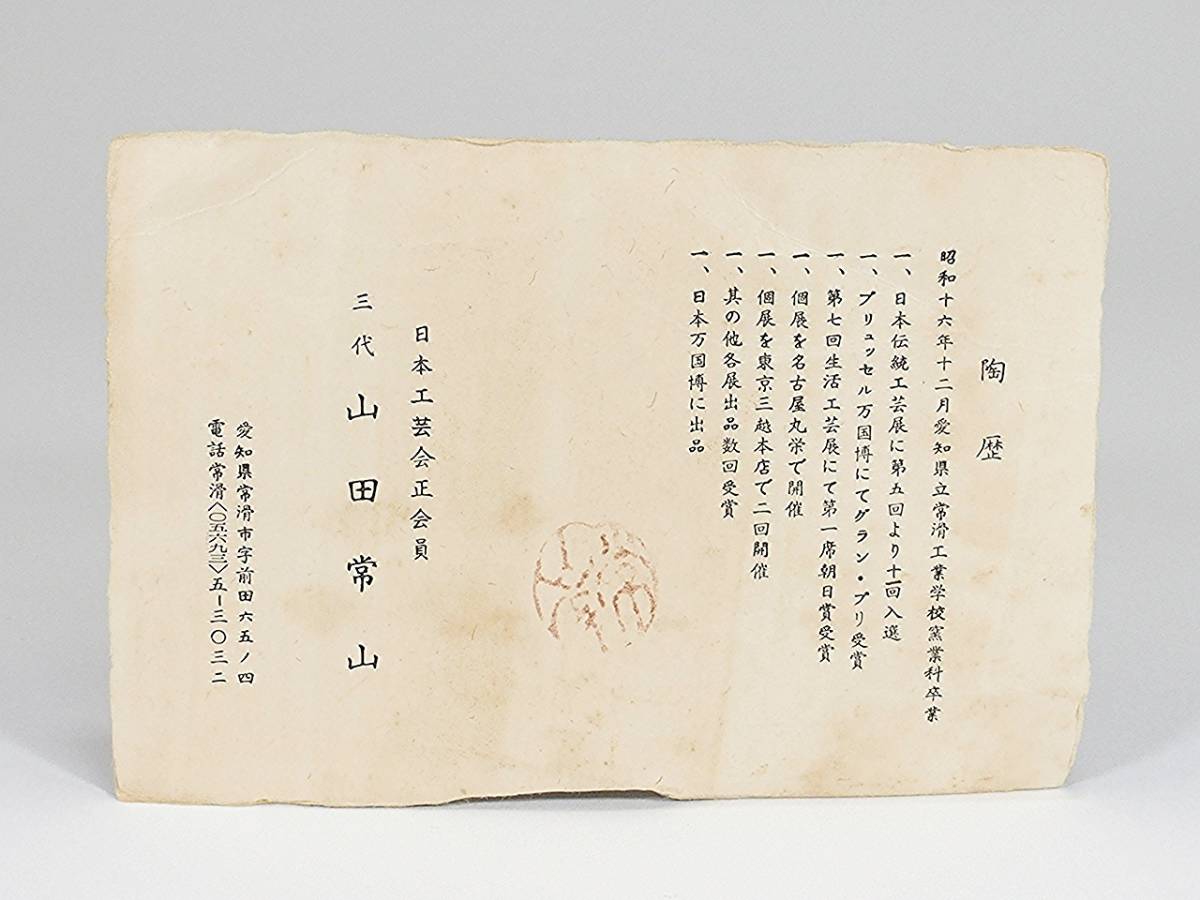 陶歴
昭和十六年十二月愛知県立常滑工業学校窯業科卒業
一、日本伝統工芸展に第五回より十一回入選
一、ブリュッセル万国博にてグラン・プリ受賞
一、第七回生活工芸展にて第一席朝日賞受賞
一、個展を名古屋丸栄で開催
一、個展を東京三越本店で二回開催
一、其の他各展出品数回受賞
一、日本万国博に出品
日本工芸会正会員
三代 山田常山
愛知県常滑市字前田六五ノ四
電話常滑〈〇五六九三〉五-三〇三二